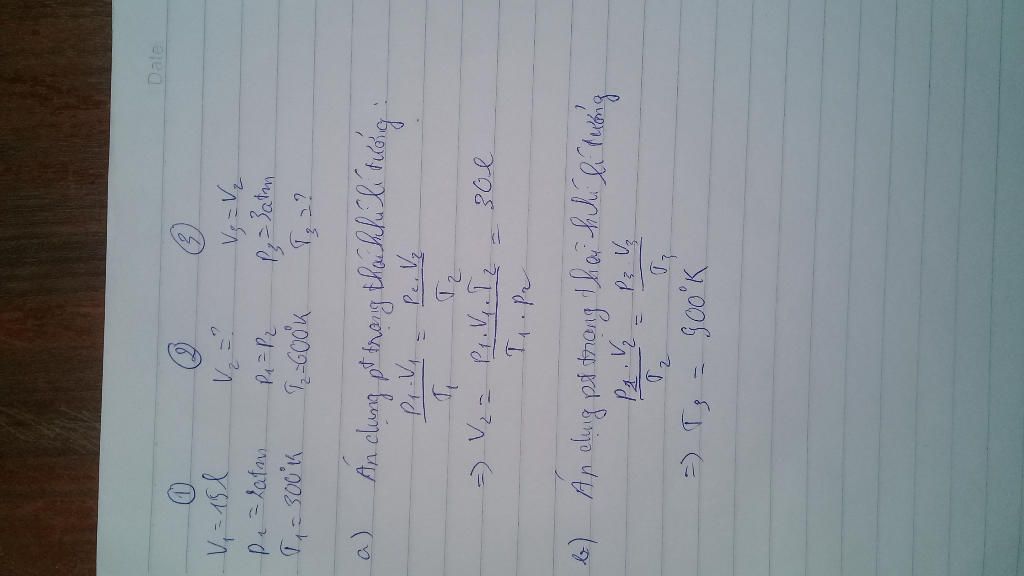 Date
① ② ③
V₁ = 15l V₂ = ? V₃ = V₂
P₁ = 2atm P₁ = P₂ P₃ = 3atm
T₁ = 300°K T₂ = 600°K T₃ = ?
a) Áp dụng pt trạng thái khí lí tưởng.
P₁.V₁ / T₁ = P₂.V₂ / T₂
=> V₂ = P₁.V₁.T₂ / T₁.P₂ = 30l
b) Áp dụng pt trạng thái khí lí tưởng
P₂.V₂ / T₂ = P₃.V₃ / T₃
=> T₃ = 900°K